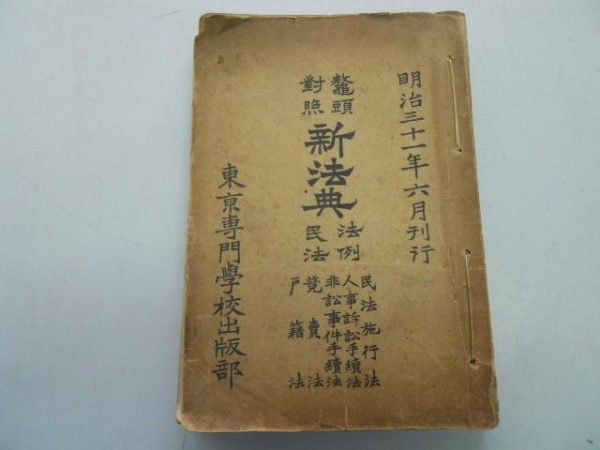 明治三十一年六月刊行
鼇頭
對照
新法典
法例
民法
民法施行法
人事訴訟手續法
非訟事件手續法
競賣法
戸籍法
東京専門學校出版部